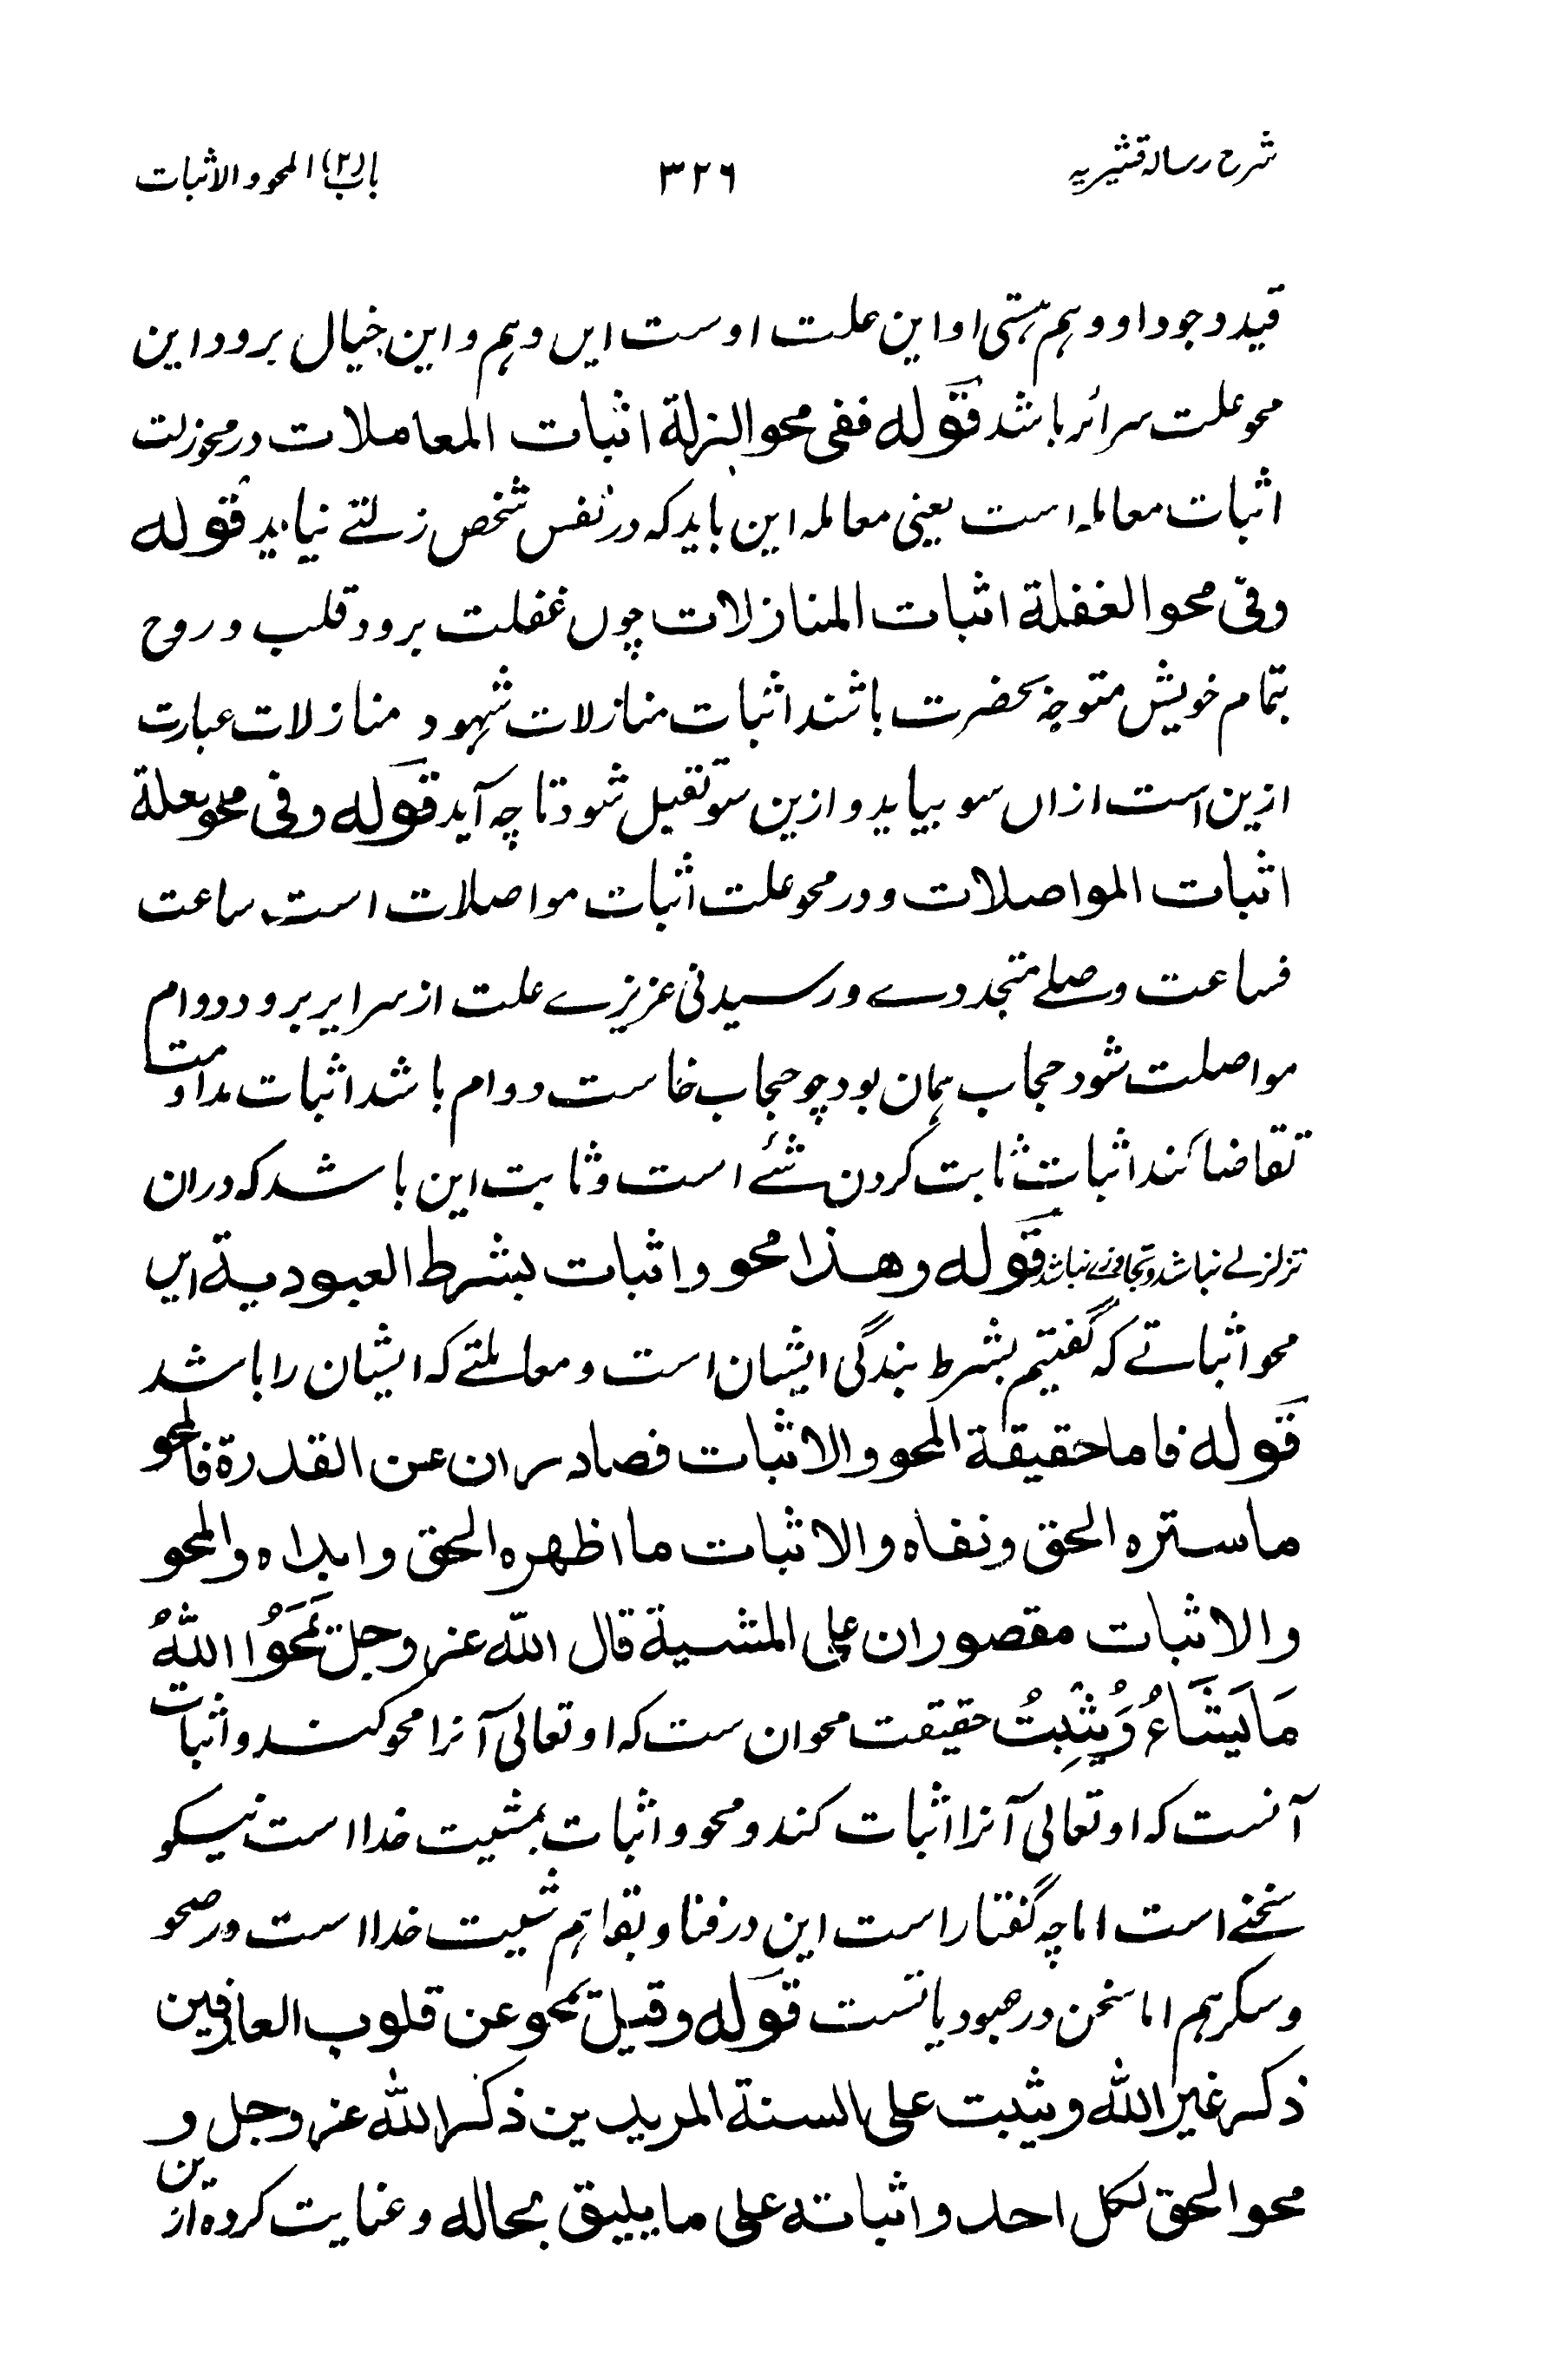 شرح رساله قشیریه
۳۲۶
باب (۲) المحو والاثبات
قید وجود او و وہم ہستی او این علت اوست ایں وہم و این خیال برود این
محو علت سرائر باشد قوله ففی محو الزلة اثبات المعاملات در محو زلت
اثبات معاملہ است یعنی معاملہ این باید کہ در نفس شخص زلتے نیاید قوله
وفی محو الغفلة اثبات المنازلات چوں غفلت برود قلب و روح
بتمام خویش متوجہ بحضرت باشند اثبات منازلات شہود منازلات عبارت
ازین است ازاں سو بیاید و ازین سو تقیل شود تا چہ آید قوله وفی محو العلة
اثبات المواصلات و در محو علت اثبات مواصلات است ساعت
فساعت وصلے متجددے و رسیدنی عزیزے علت از سرایر برود دوام
مواصلت شود حجاب ہمان بود چو حجاب خاست دوام باشد اثبات مداومت
تقاضا کند اثبات ثابت کردن شئے است و ثابت این باشد کہ دران
تزلزلے نباشد و تجافی نباشد قوله وهذا محو واثبات بشرط العبودية ایں
محو اثباتے کہ گفتیم بشرط بندگی ایشان است و معاملتے کہ ایشان را باشد
قوله فاما حقيقة المحو والاثبات فصادران عن القدرة فالمحو
ماستره الحق ونفاه والاثبات ما اظهره الحق وابداه والمحو
والاثبات مقصوران على المشية قال الله عز وجل يَمْحَوُا اللهُ
مَا يَشَاءُ وَيُثْبِتُ حقیقت محوان ست کہ او تعالی آنرا محو کند و اثبات
آنست کہ او تعالی آنرا اثبات کند و محو و اثبات بمشیت خدا است نیکو
سخنے است اما چہ گفتار است این در فنا و بقا ہم مشیت خدا است در صحو
و سکر ہم اما سخن در صبود یا تست قوله وقيل يمحو عن قلوب العارفين
ذكر غير الله ويثبت على السنة المريدين ذكر الله عز وجل و
محو الحق لكل احد واثباته على ما يليق بحاله و عنایت کرده ازین